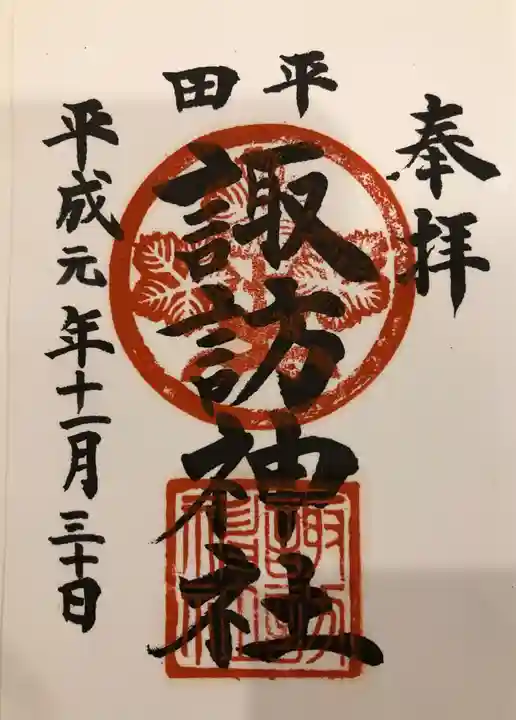 奉拝
田平
諏訪神社
平成元年十一月三十日
諏訪神社